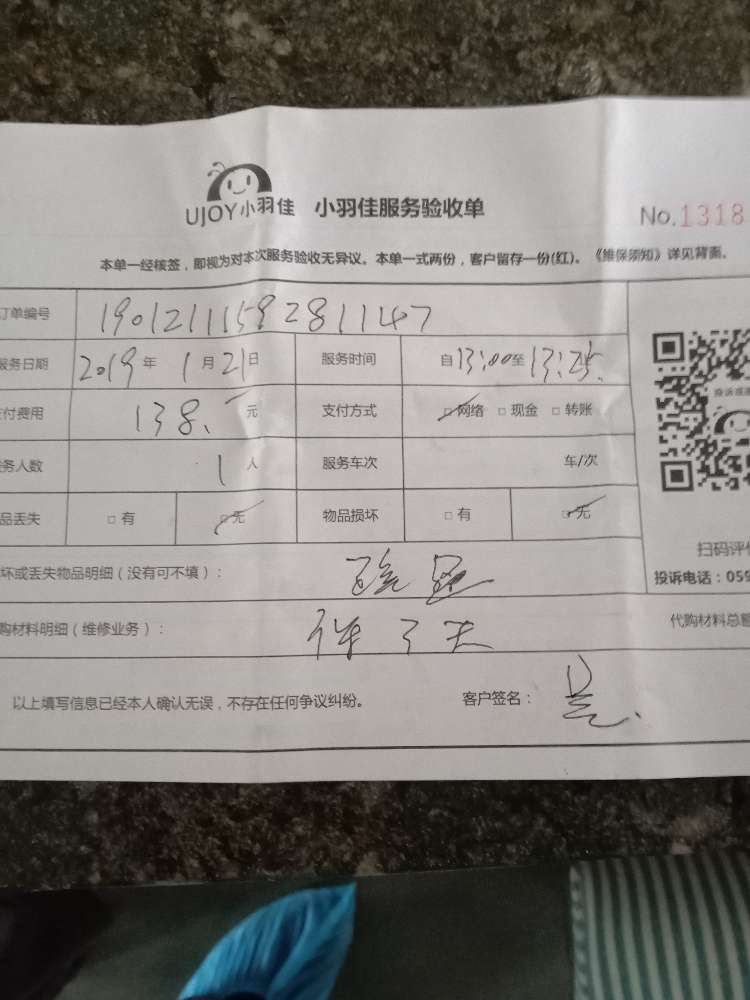 UJOY小羽佳 小羽佳服务验收单 No.1318
本单一经核签，即视为对本次服务验收无异议。本单一式两份，客户留存一份(红)。《维保须知》详见背面。
订单编号 19012111592811147
服务日期 2019年 1月21日 服务时间 自13:00至13:25
支付费用 138.元 支付方式 □网络 □现金 □转账
务人数 1人 服务车次 车/次
品丢失 □有 □无 物品损坏 □有 □无
坏或丢失物品明细（没有可不填）：
购材料明细（维修业务）：
以上填写信息已经本人确认无误，不存在任何争议纠纷。 客户签名：
投诉或
扫码评价
投诉电话：059
代购材料总额